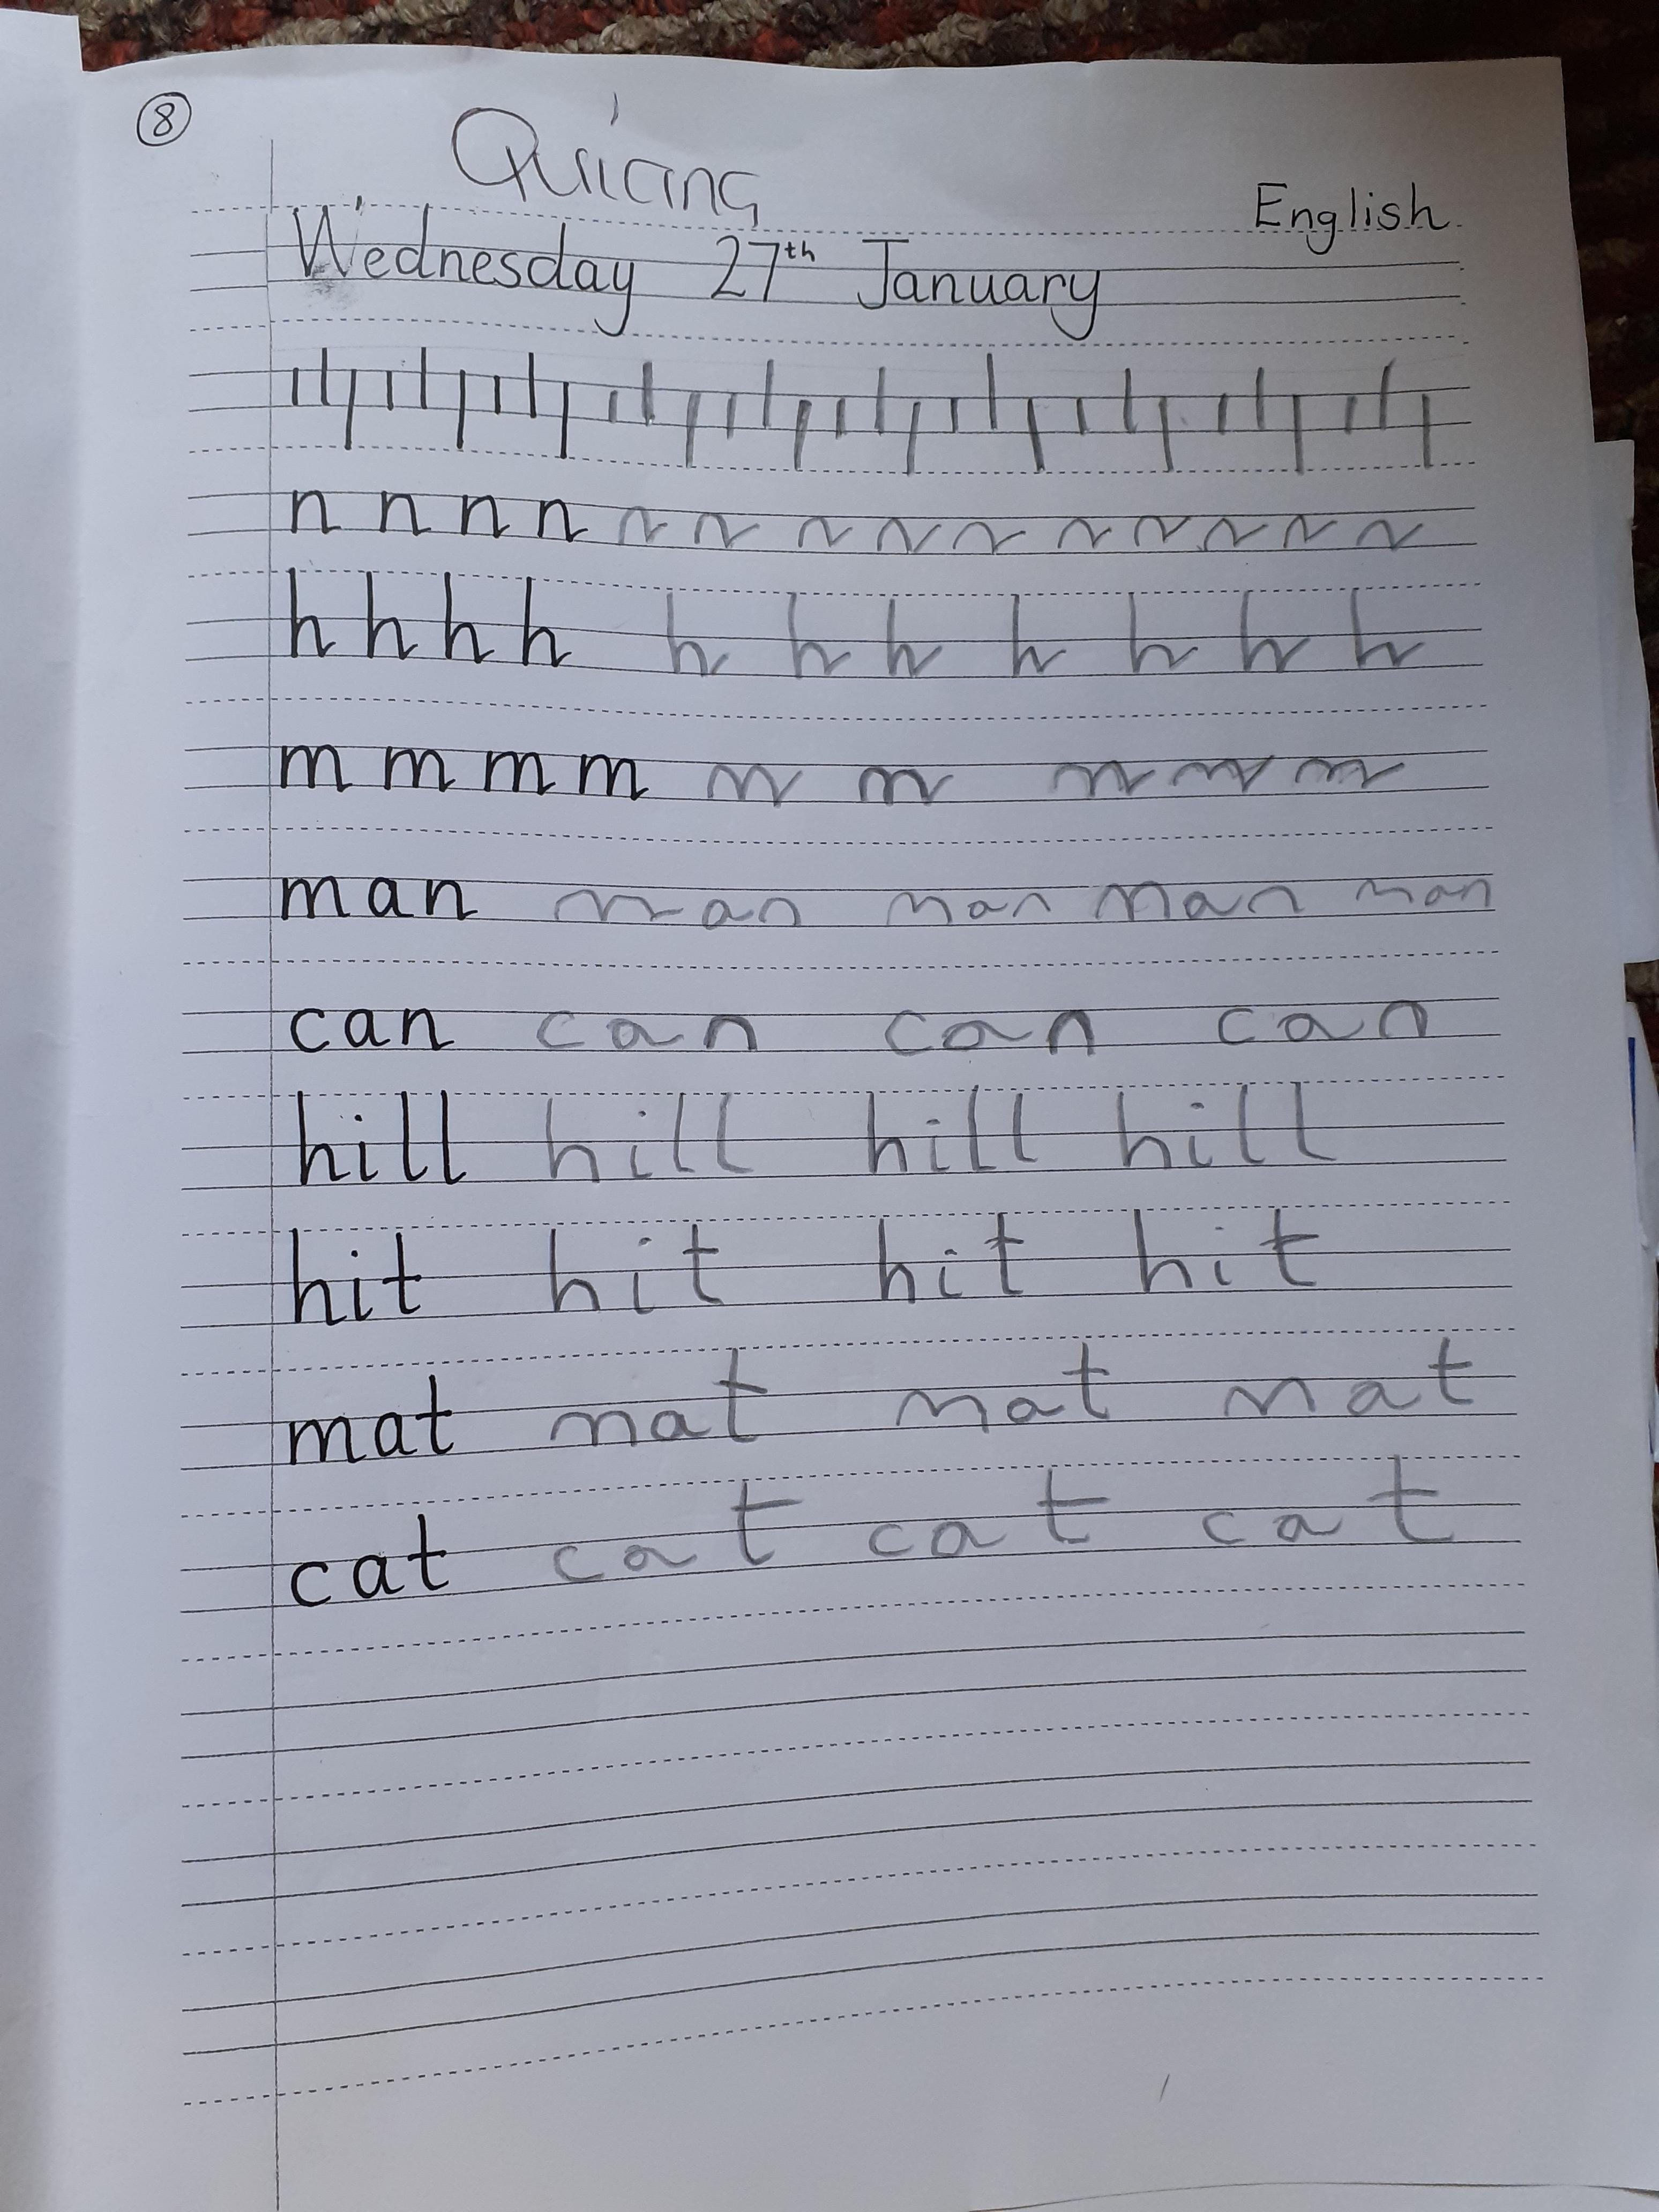 8
English
Wednesday 27th January
n n n n n n n n n n n n n n
h h h h h h h h h h h
m m m m m m m m m
man man man man man
can can can can
hill hill hill hill
hit hit hit hit
mat mat mat mat
cat cat cat cat